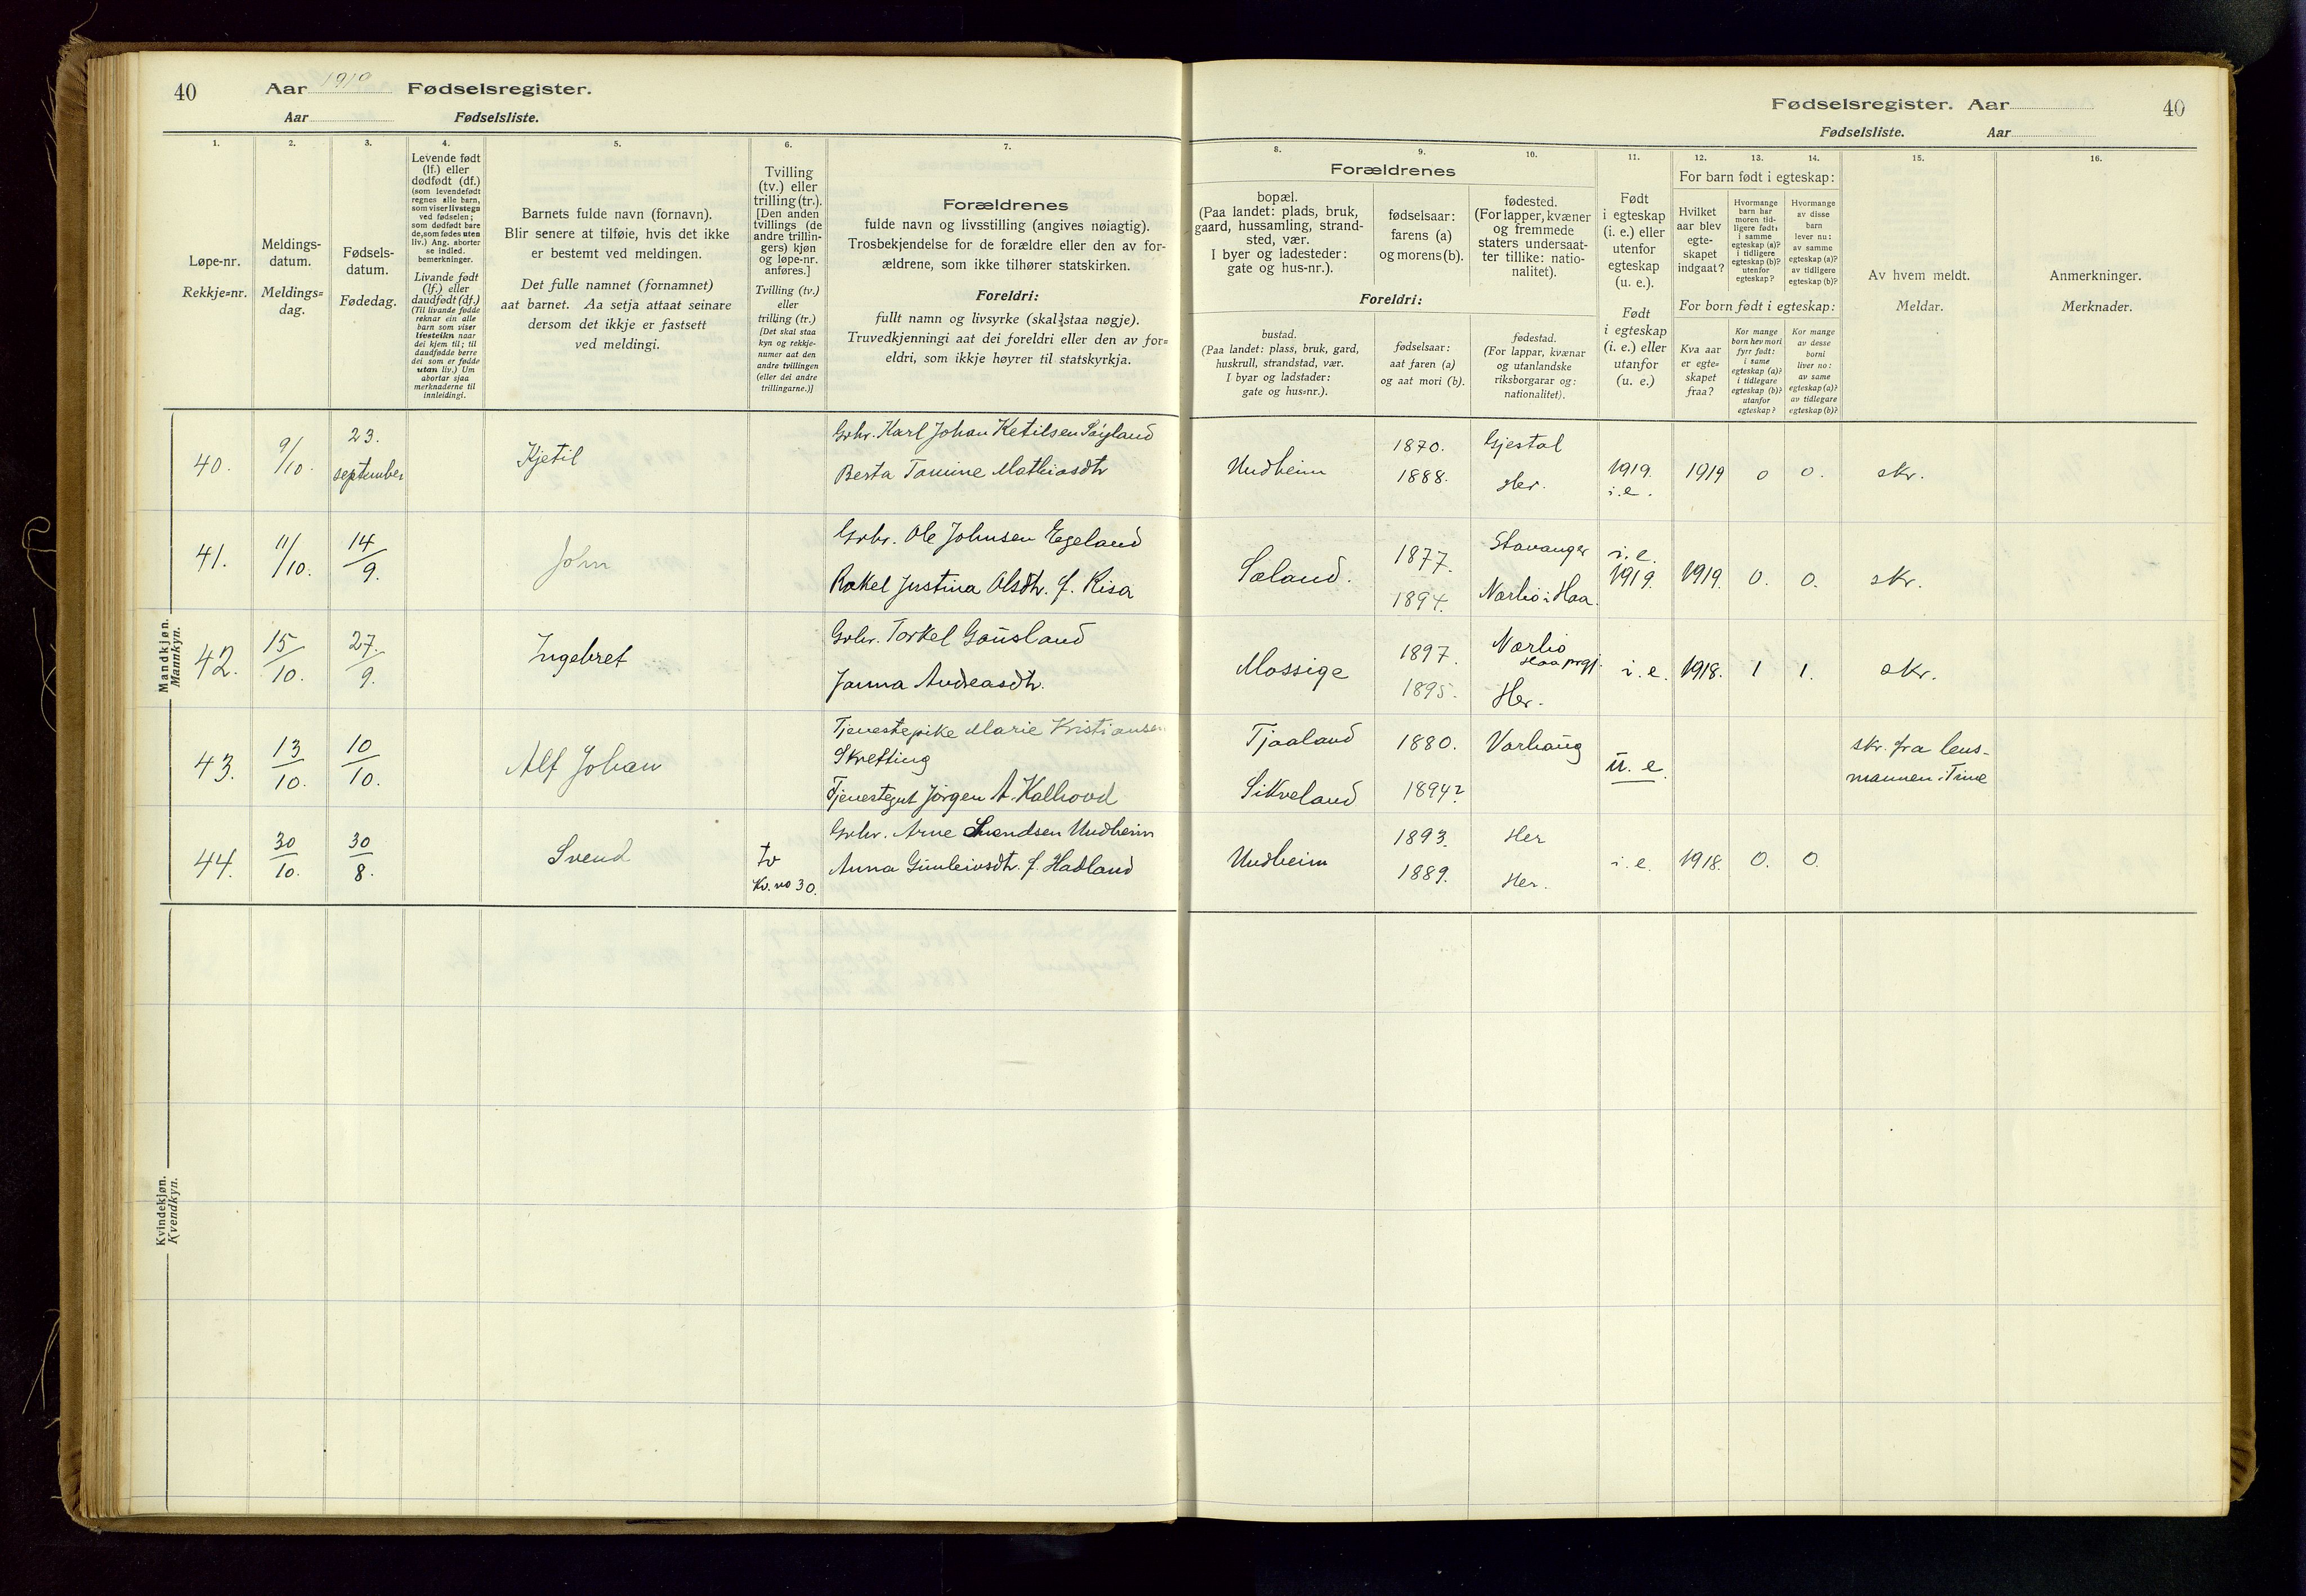 40 Aar 1919 Fødselsregister.
Aar Fødselsliste.
Fødselsregister. Aar 40
Fødselsliste. Aar
1. 2. 3. 4. 5. 6. 7. 8. 9. 10. 11. 12. 13. 14. 15. 16.
Løpe-nr.
Rekkje=nr.
Meldings-
datum.
Meldings=
dag.
Fødsels-
datum.
Fødedag.
Levende født
(lf.) eller
dødfødt (df.)
(som levendefødt
regnes alle barn,
som viser livstegn
ved fødselen;
som dødfødt bare
de, som fødes uten
liv.) Ang. aborter
se indled.
bemerkninger.
Livande født
(lf.) eller
daudfødt (df.)
(Til livande fødde
reknar ein alle
barn som viser
livsteikn naar
dei kjem til; til
daudfødde berre
dei som er fødde
utan liv.) Um
abortar sjaa
merknaderne til
innleidingi.
Barnets fulde navn (fornavn).
Blir senere at tilføie, hvis det ikke
er bestemt ved meldingen.
Det fulle namnet (fornamnet)
aat barnet. Aa setja attaat seinare
dersom det ikkje er fastsett
ved meldingi.
Tvilling
(tv.) eller
trilling (tr.).
[Den anden
tvillings (de
andre trillin-
gers) kjøn
og løpe-nr.
anføres.]
Tvilling (tv.)
eller
trilling (tr.)
[Det skal staa
kyn og rekkje-
numer aat den
andre tvillingen
(eller dei andre
trillingarne.)]
Forældrenes
fulde navn og livsstilling (angives nøiagtig).
Trosbekjendelse for de forældre eller den av for-
ældrene, som ikke tilhører statskirken.
Foreldri:
fullt namn og livsyrke (skal staa nøgje).
Truvedkjenningi aat dei foreldri eller den av for=
eldri, som ikkje høyrer til statskyrkja.
Forældrenes
bopæl.
(Paa landet: plads, bruk,
gaard, hussamling, strand-
sted, vær.
I byer og ladesteder:
gate og hus-nr.).
fødselsaar:
farens (a)
og morens (b).
fødested.
(For lapper, kvæner
og fremmede
staters undersaat-
ter tillike: natio-
nalitet).
Foreldri:
bustad.
(Paa landet: plass, bruk, gard,
huskrull, strandstad, vær.
I byar og ladstader:
gate og hus=nr.).
fødselsaar:
aat faren (a)
og aat mori (b).
fødestad.
(For lappar, kvænar
og utanlandske
riksborgarar og:
nationalitet).
Født
i egteskap
(i. e.) eller
utenfor
egteskap
(u. e.).
Født
i egteskap
(i. e.) eller
utanfor
(u. e.)
For barn født i egteskap:
Hvilket
aar blev
egte-
skapet
indgaat?
Hvormange
barn har
moren tid-
ligere født:
i samme
egteskap (a)?
i tidligere
egteskap (b)?
utenfor
egteskap?
Hvormange
av disse
barn
lever nu:
av samme
egteskap (a)?
av tidligere
egteskap (b)?
For born født i egteskap:
Kva aar
er egte=
skapet
fraa?
Kor mange
born hev mori
fyrr født:
i same
egteskap (a)?
i tidlegare
egteskap (b)?
utanfor
egteskap?
Kor mange
av desse
borni
liver no:
av same
egteskap (a)?
av tidlegare
egteskap (b)?
Av hvem meldt.
Meldar.
Anmerkninger.
Merknader.
Mandkjøn.
Mannkyn.
40. 9/10. 23. september Kjetil Grbr. Karl Johan Ketilsen Søyland
Berta Tomine Mathiasdtr
Undheim 1870. 1888. Gjestal Her. 1919. i. e. 1919 0 0. skr.
41. 11/10. 14/9. John Grbr. Ole Johnsen Egeland
Rakel Justina Olsdtr. f. Risa
Sæland. 1877. 1894. Stavanger Nærbø i Haa. i. e. 1919. 1919. 0. 0. skr.
42. 15/10. 27./9. Ingebret Grbr. Torkel Gausland
Janna Andreasdtr.
Mossige 1897. 1895. Nærbø Haa prgj. Her. i. e. 1918. 1 1. skr.
43. 13/10. 10/10. Alf Johan Tjenestepike Marie Kristiansen
Skretting
Tjenestegut Jørgen A. Kalhovd
Tjaaland Sikveland 1880. 1894? Varhaug u. e. skr. fra lens-
mannen i Time
44. 30/10. 30/8. Svend tv Kv. no 30. Grbr. Arne Svendsen Undheim
Anna Gunleivsdtr. f. Hadland
Undheim 1893. 1889. Her Her. i. e. 1918. 0. 0.
Kvindekjøn.
Kvendkyn.